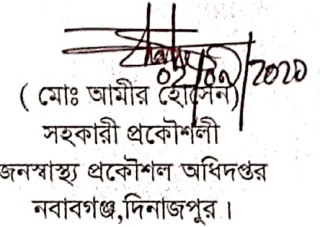 ০২/০৯/২০২০
( মোঃ আমীর হোসেন)
সহকারী প্রকৌশলী
জনস্বাস্থ্য প্রকৌশল অধিদপ্তর
নবাবগঞ্জ,দিনাজপুর।